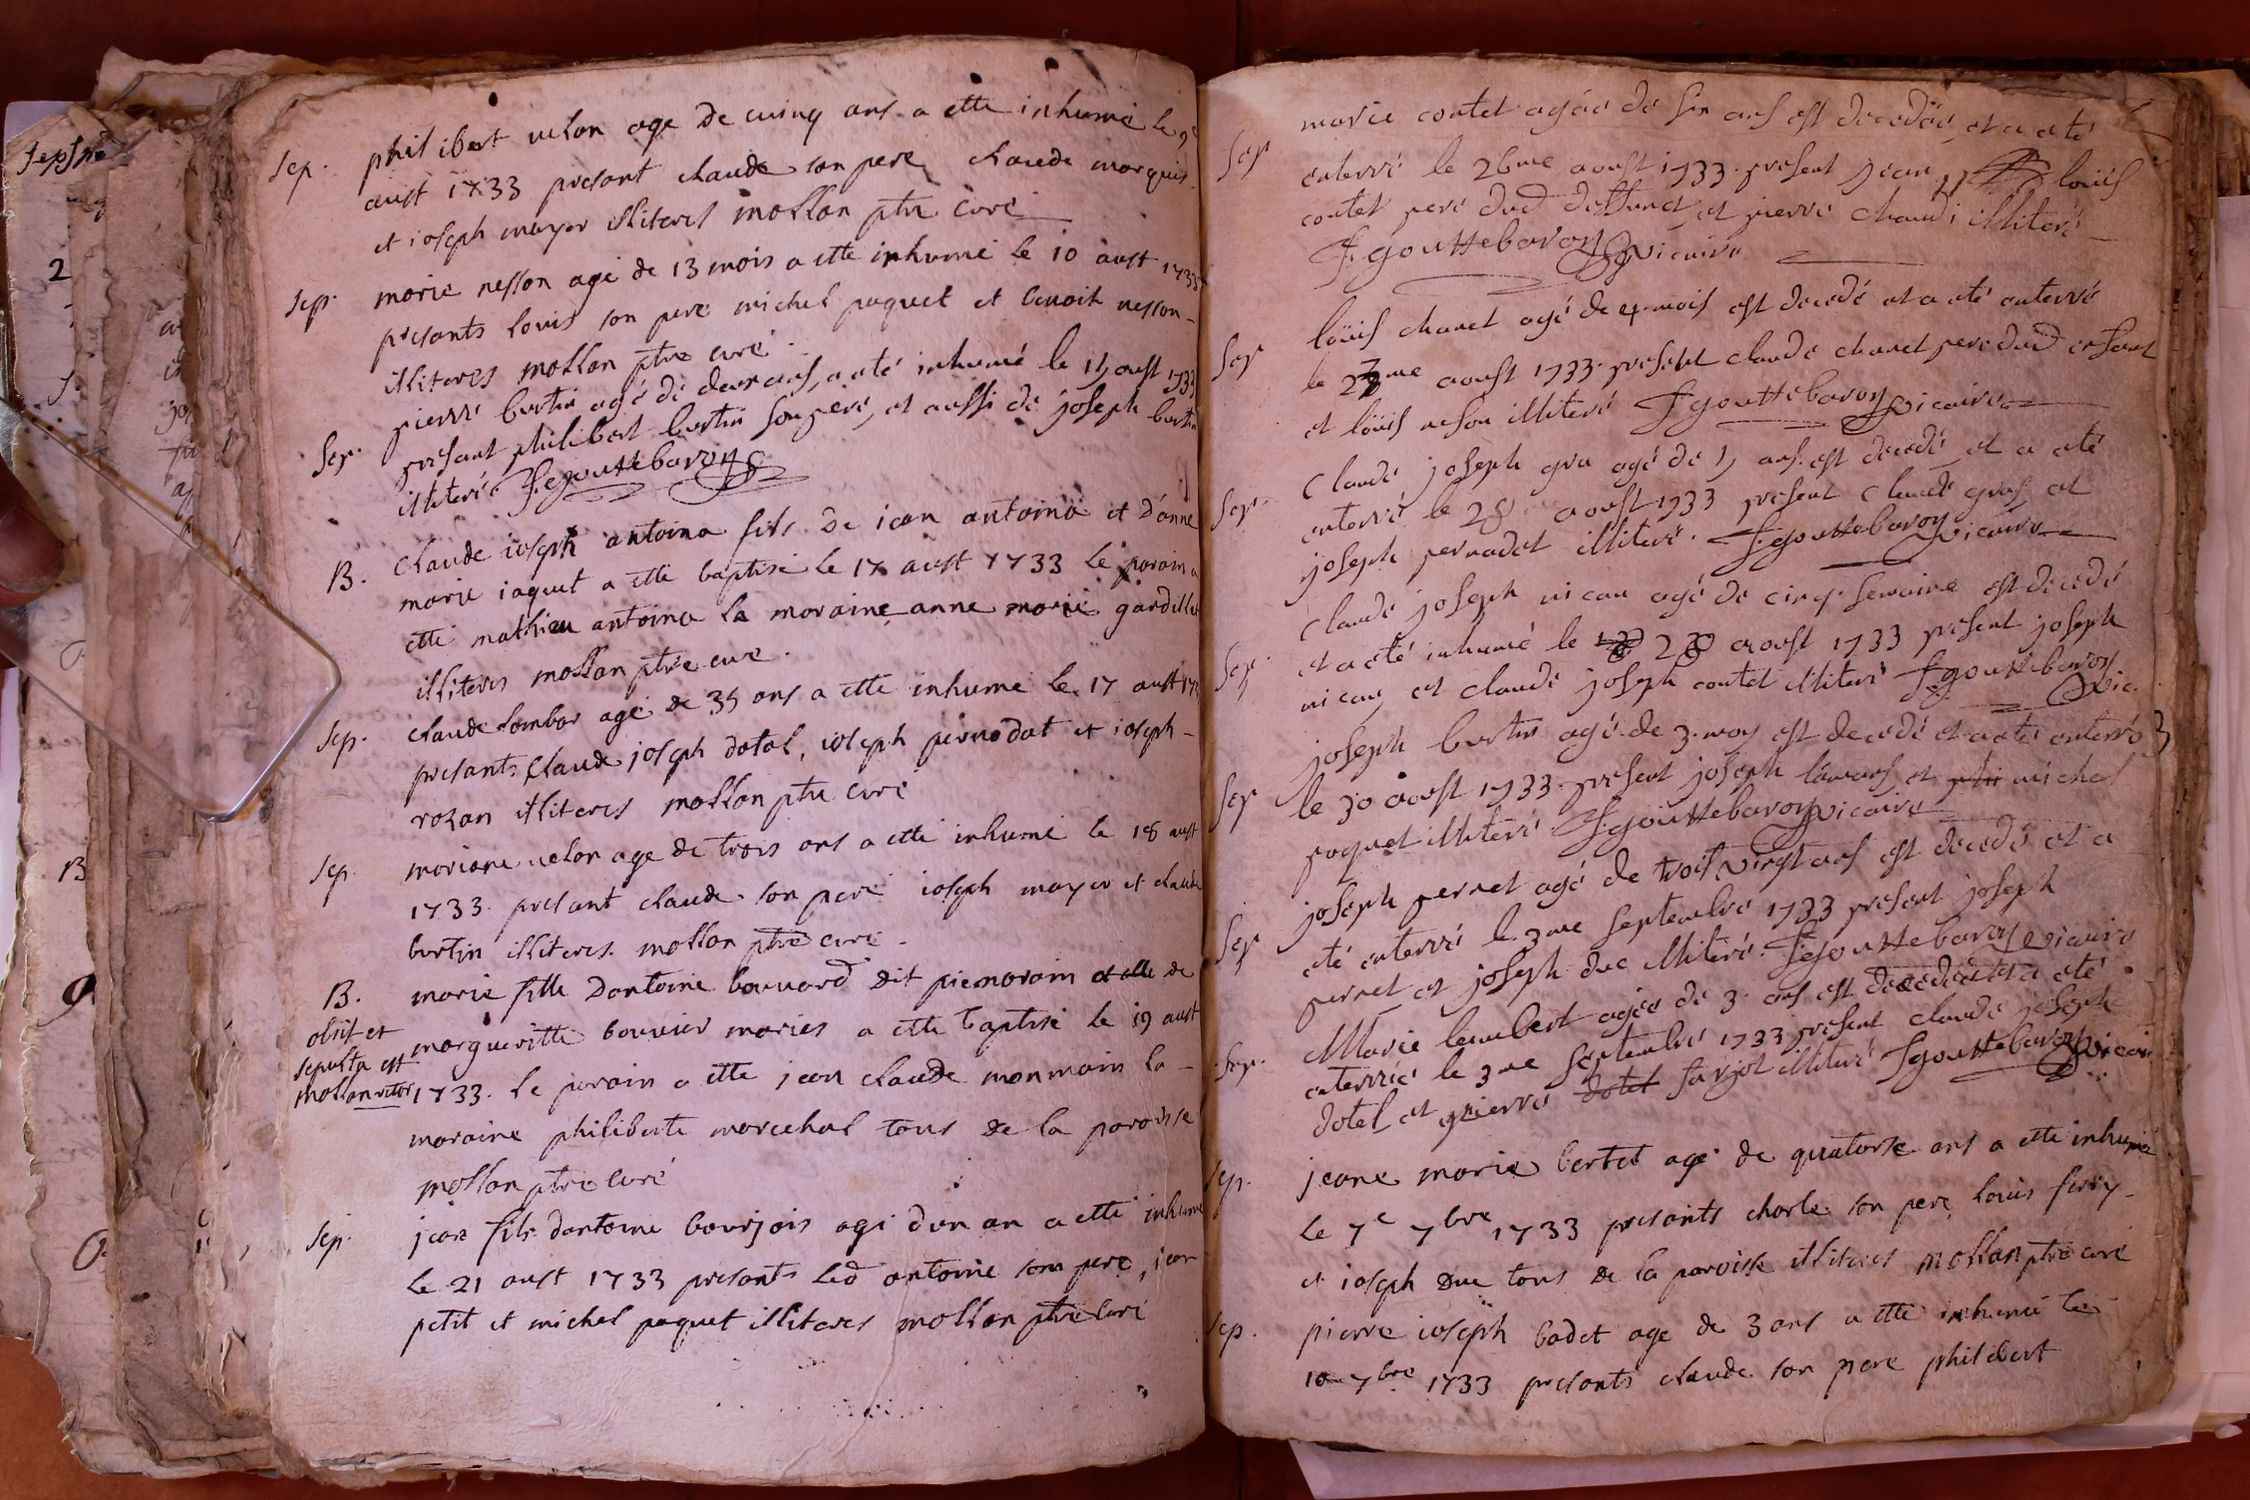 Sep. philibert nelon age de cuinq ans a ette inhumé le 9e
aust 1733 presant claude son pere claude marquis
et ioseph mayer illiteres mollon ptre curé
Sep. marie nesson agé de 13 mois a ette inhumé le 10 aust 1733
presants louis son pere michel paquet et benoit nesson
illiteres mollon ptre curé
Sep. pierre bertin agé de deux ans, a eté inhumé le 15 aust 1733
presant philibert bertin son pere, et aussi de joseph bertin
illiteré F. gouttebaron
B. Claude ioseph antoine fils de jean antoine et d'anne
marie iaquet a ette baptisé le 17 aust 1733 le parain a
etté mathieu antoine la maraine anne marie gardille
illiteres mollan ptre cure.
Sep. claude lombar agé de 35 ans a ette inhume le 17 aust
presants claude joseph dotal, ioseph pernodat et ioseph
rozan illiteres mollon ptre curé
Sep. mariane nelon age de trois ans a etté inhumé le 18 aust
1733. presant claude son pere ioseph mayer et claude
bertin illiteres. mollon ptre curé.
B. marie fille dantoine bouvard dit piemorain et de
obiit et
margueritte bouvier mariés a ette baptisé le 19 aust
sepulta est
mollan
1733. le parain a ette jean claude monmain la
maraine philiberte marechal tous de la paroisse
mollan ptre curé
Sep. jean fils dantoine bourjois agé dun an a etté inhumé
le 21 aust 1733 presants led antoine son pere, jean
petit et michel paquet illiteres mollan ptre curé
Sep marie contet agée de six ans est decedée et a eté
enterré le 26me aoust 1733. present Jean louis
contet pere dud deffunct et pierre chaudi illiteré
F. gouttebaron vicaire
Sep loüis chanet agé de 4 mois est decedé et a eté enterré
le 27me aoust 1733. present claude chanet pere dud enfant
et loüis neson illiteré F gouttebaron vicaire
Sep. Claude joseph gra agé de 15 ans est decedé et a eté
enterré le 28 aoust 1733 present Claude gras et
joseph pernadet illiteré. F. gouttebaron vicaire
Sep. Claude joseph nicau agé de cinq semaine est decedé
et a eté inhumé le 28 aoust 1733 present joseph
nicau, et claude joseph contet illiteré F gouttebaron
vic.
Sep joseph bertin agé de 3. moy est decedé et a eté enterré
le 30 aoust 1733. present joseph et michel
paquet illiteré F. gouttebaron vicaire
Sep joseph pernet agé de trois vingt ans est decedé et a
eté enterré le 3me septembre 1733 present joseph
pernet et joseph duc illiteré. F. gouttebaron vicaire
Sep. Marie lambert agée de 3. ans est decedée et a eté
enterrée le 3me Septembre 1733 present claude joseph
dotel et pierre dotel farjot illiteré F gouttebaron
Sep. jeane marie bertet agé de quatorse ans a etté inhumé
le 7e 7bre 1733 presants charle son pere, louis ferry
et ioseph duc tous de la paroisse illiteres mollan ptre curé
Sep. pierre ioseph badet age de 3 ans a etté inhumé le
10 7bre 1733 presants claude son pere philibert